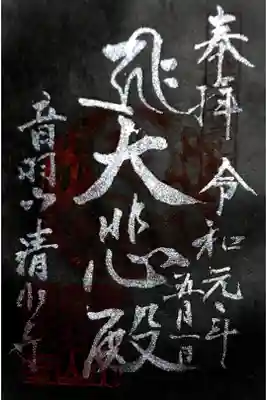 奉拝 令和元年五月一日
大悲殿
音羽山清水寺